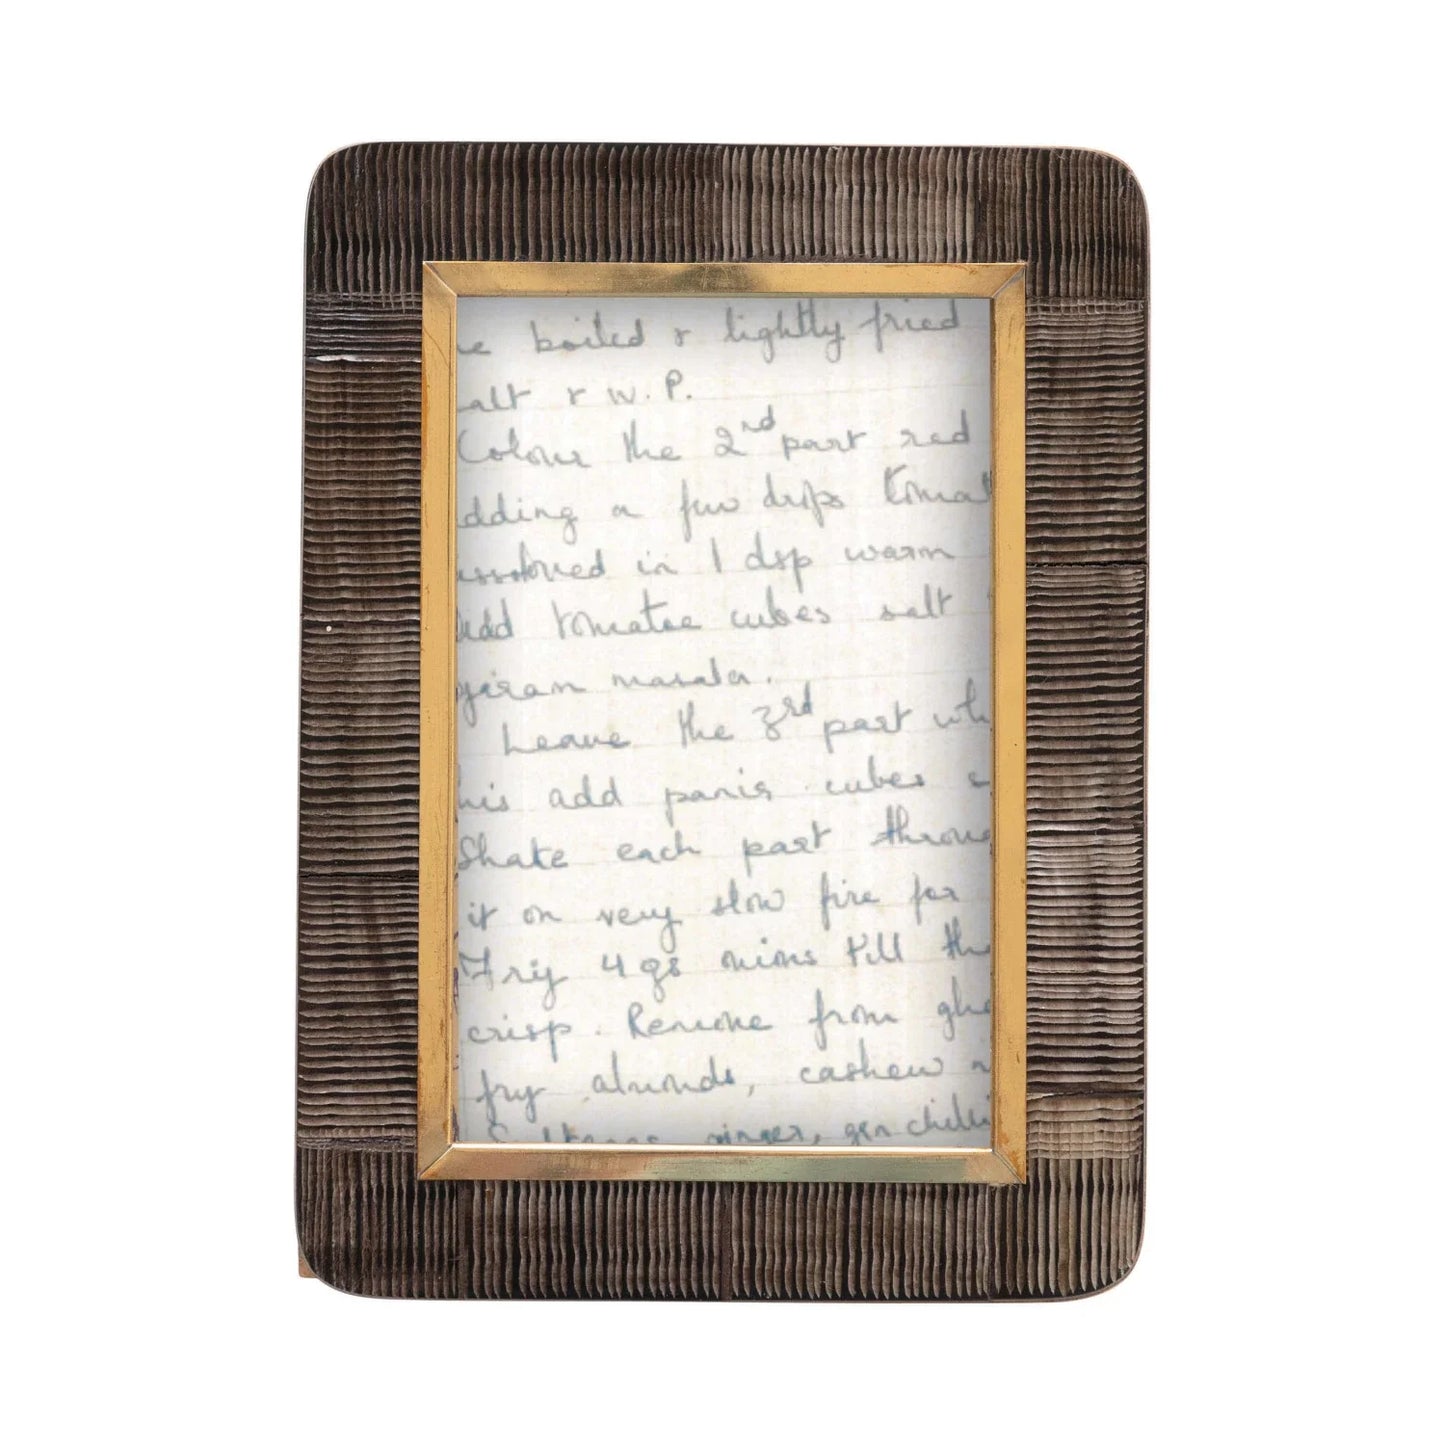 e boiled & lightly fried
alt & W.P.
Colour the 2nd part red
dding a few drops tomat
ssolved in 1 dsp warm
Add tomatoe cubes salt
garam masala.
Leave the 3rd part wh
his add panir cubes
Shake each part throug
it on very slow fire for
Fry 4 gs onions till the
crisp. Remove from ghe
fry almonds, cashew n
Sultanas ginger, grn chilli